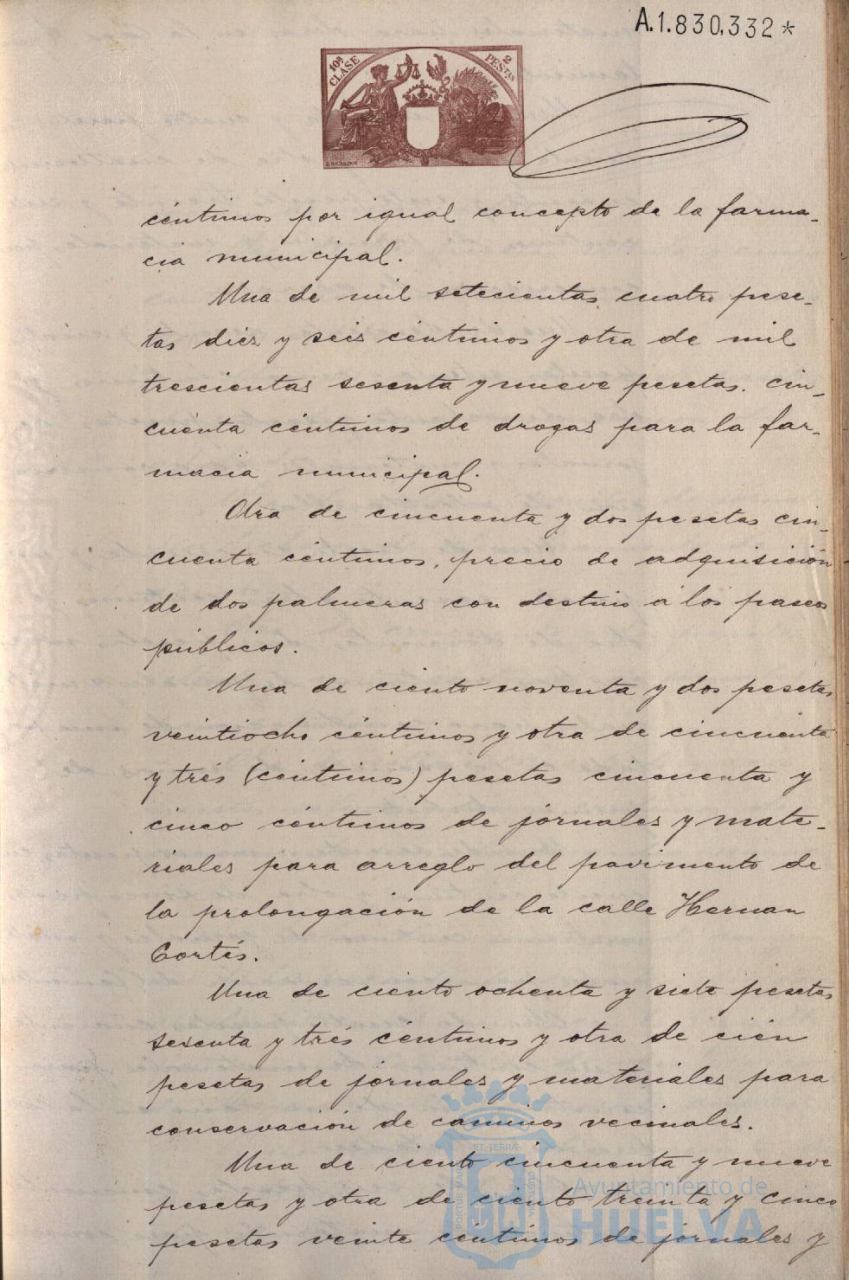 A.1.830,332*
10ª CLASE
2 PESTAS
céntimos por igual concepto de la farma-
cia municipal.
Una de mil setecientas cuatro pese-
tas diez y seis céntimos y otra de mil
trescientas sesenta y nueve pesetas. cin-
cuenta céntimos de drogas para la far-
macia municipal.
Otra de cincuenta y dos pesetas cin-
cuenta céntimos, precio de adquisición
de dos palmeras con destino a los paseos
públicos.
Una de ciento noventa y dos pesetas
veintiocho céntimos y otra de cincuenta
y trés (céntimos) pesetas cincuenta y
cinco céntimos de jornales y mate-
riales para arreglo del pavimento de
la prolongación de la calle Hernan
Cortés.
Una de ciento ochenta y siete pesetas
sesenta y trés céntimos y otra de cién
pesetas de jornales y materiales para
conservación de caminos vecinales.
Una de ciento cincuenta y nueve
pesetas y otra de ciento treinta y cinco
pesetas veinte céntimos de jornales y
Ayuntamiento de
HUELVA